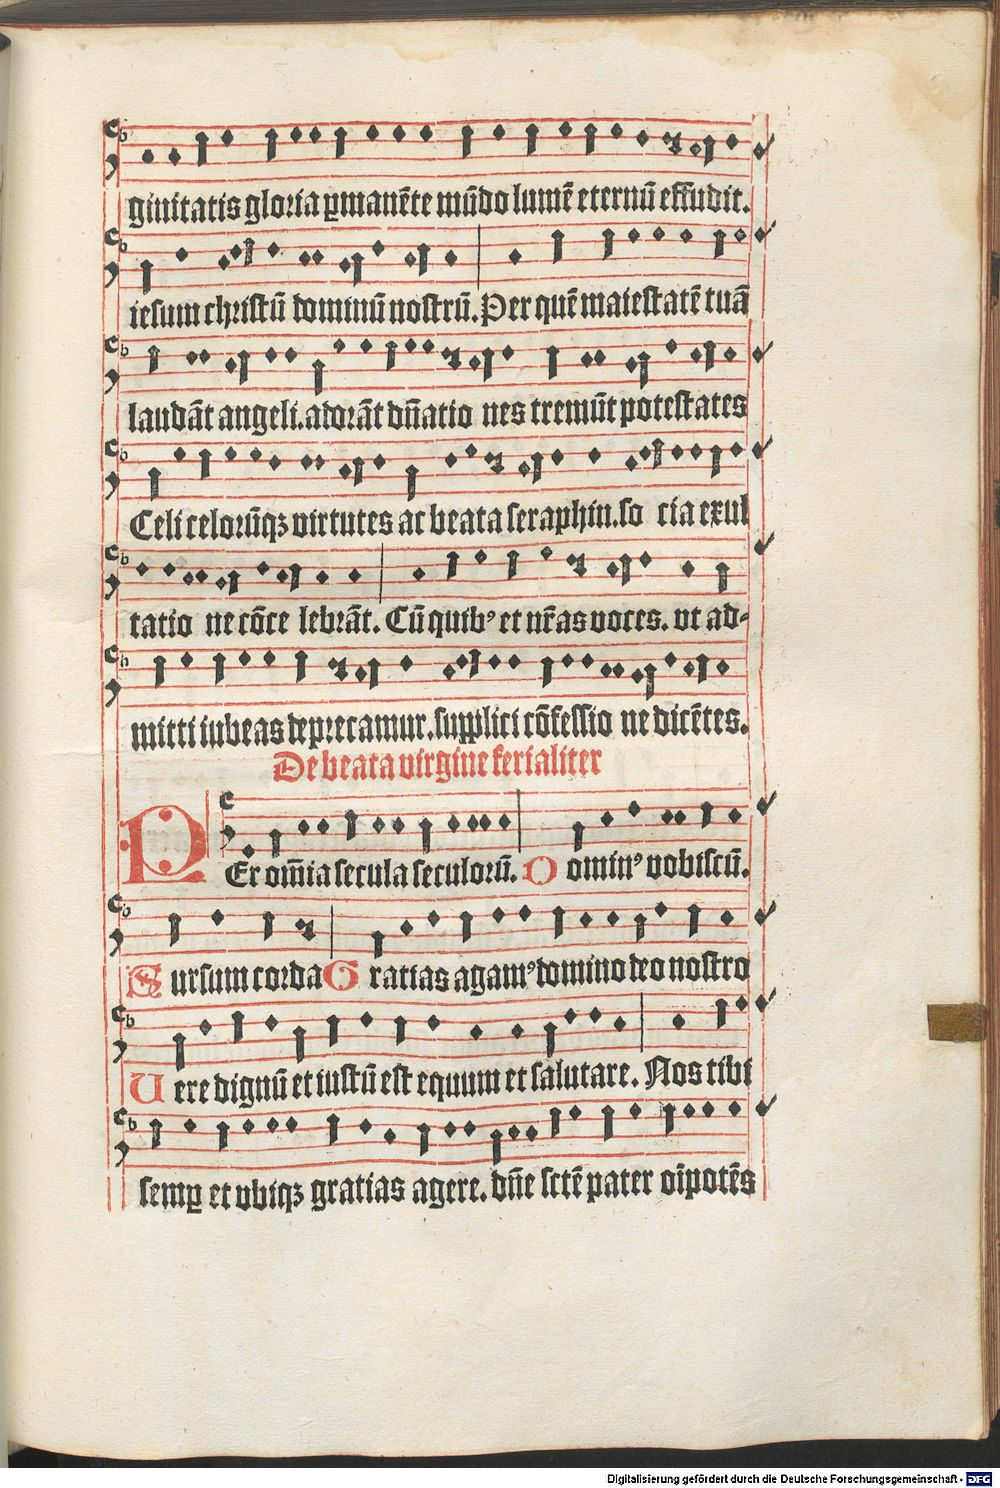 ginitatis gloria ꝑmanēte mūdo lumē eternū effudit.
iesum christū dominū nostrū. Per quē maiestatē tuā
laudāt angeli. adorāt dn̄atio nes tremūt potestates
Celi celorūqꝫ virtutes ac beata seraphin. so cia exul
tatio ne cōce lebrāt. Cū quibꝰ et nr̄as voces. vt ad-
mitti iubeas deprecamur. supplici cōfessio ne dicētes.
De beata virgine ferialiter
PEr om̄ia secula seculorū. Dominꝰ vobiscū.
Sursum corda Gratias agamꝰ domino deo nostro
Uere dignū et iustū est equum et salutare. Nos tibi
semꝑ et vbiqꝫ gratias agere. dn̄e sctē pater oīpotēs
Digitalisierung gefördert durch die Deutsche Forschungsgemeinschaft - DFG